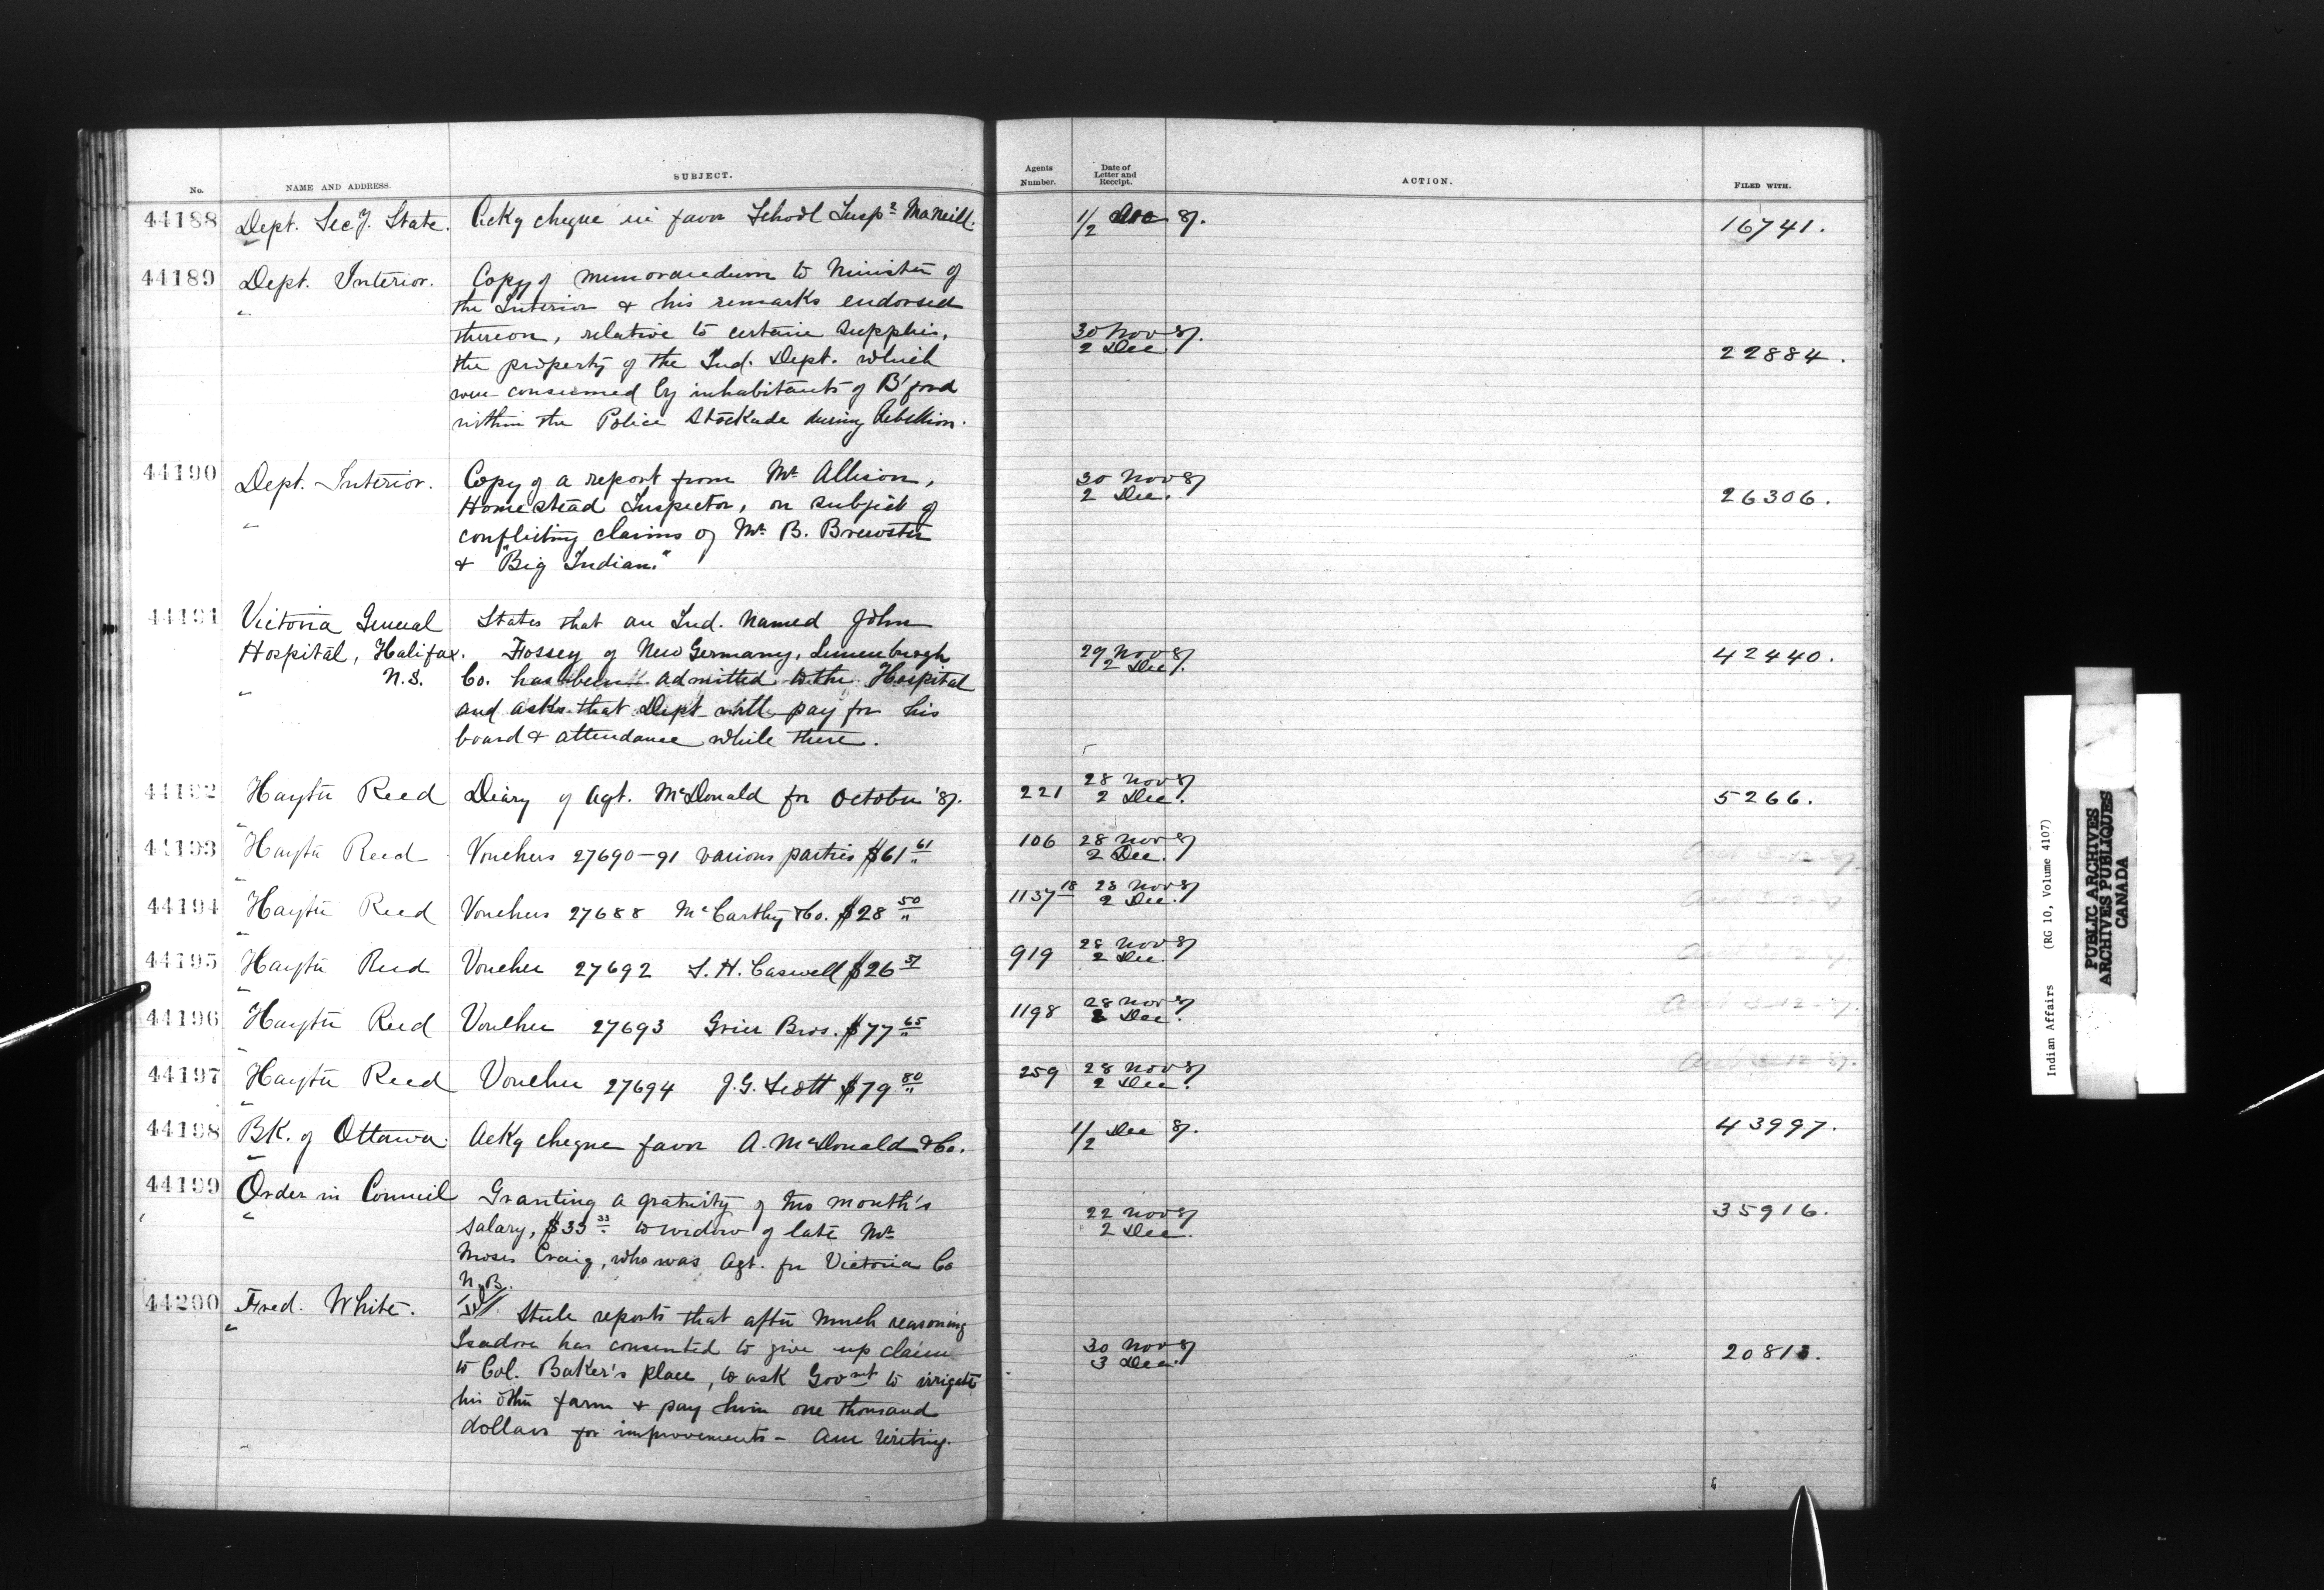 No. NAME AND ADDRESS. SUBJECT. Agents Number. Date of Letter and Receipt. ACTION. FILED WITH.
44188 Dept. Sec'y. State. Ackg cheque in favor School Inspr McNeill. 1/2 Dec 87. 16741.
44189 Dept. Interior. Copy of memorandum to Minister of
" the Interior & his remarks endorsed
thereon, relative to certain supplies, 30 Nov 87.
the property of the Ind. Dept. which 2 Dec. 22884.
were consumed by inhabitants of B'ford
within the Police Stockade during Rebellion.
44190 Dept. Interior. Copy of a report from Mr. Allison, 30 Nov 87
" Homestead Inspector, on subject of 2 Dec. 26306.
conflicting claims of Mr. B. Brewster
& "Big Indian."
44191 Victoria General States that an Ind. named John
Hospital, Halifax. Fossey of New Germany, Lunenburgh 29 Nov 87 42440.
N.S. Co. has been admitted to the Hospital 2 Dec.
" and asks that Dept. will pay for his
board & attendance while there.
44192 Hayter Reed Diary of Agt. McDonald for October '87. 221 28 Nov 87 2 Dec. 5266.
44193 Hayter Reed Vouchers 27690-91 various parties $61 61 106 28 Nov 87 2 Dec.
44194 Hayter Reed Vouchers 27688 McCarthy & Co. $28 50 1137 18 28 Nov 87 2 Dec.
44195 Hayter Reed Voucher 27692 L. H. Caswell $26 37 919 28 Nov 87 2 Dec.
44196 Hayter Reed Voucher 27693 Grier Bros. $77 65 1198 28 Nov 87 2 Dec.
44197 Hayter Reed Voucher 27694 J.G. Scott $79 80 259 28 Nov 87 2 Dec.
44198 BK. of Ottawa Ackg cheque favor A. McDonald & Co. 1/2 Dec 87. 43997.
44199 Order in Council Granting a gratuity of two month's 22 Nov 87 35916.
" salary, $33 33 to widow of late Mr. 2 Dec.
Moses Craig, who was Agt. for Victoria Co
N.B.
44200 Fred. White. Tel Steele reports that after much reasoning
" Isadore has consented to give up claim 30 Nov 87
to Col. Baker's place, to ask Govmt to irrigate 3 Dec. 20813.
his other farm & pay him one thousand
dollars for improvements - Am writing.
Indian Affairs (RG 10, Volume 4107)
PUBLIC ARCHIVES
ARCHIVES PUBLIQUES
CANADA